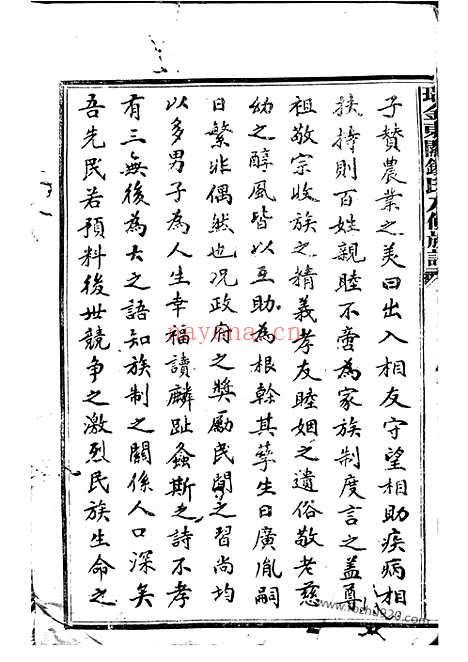 子贊農業之美曰出入相友守望相助疾病相
扶持則百姓親睦不啻為家族制度言之蓋尊
祖敬宗收族之精義孝友睦婣之遺俗敬老慈
幼之醇風皆以互助為根幹其孳生日廣胤嗣
日繁非偶然也况政府之獎勵民間之習尚均
以多男子為人生幸福讀麟趾螽斯之詩不孝
有三無後為大之語知族制之關係人口深矣
吾先民若預料後世競爭之激烈民族生命之